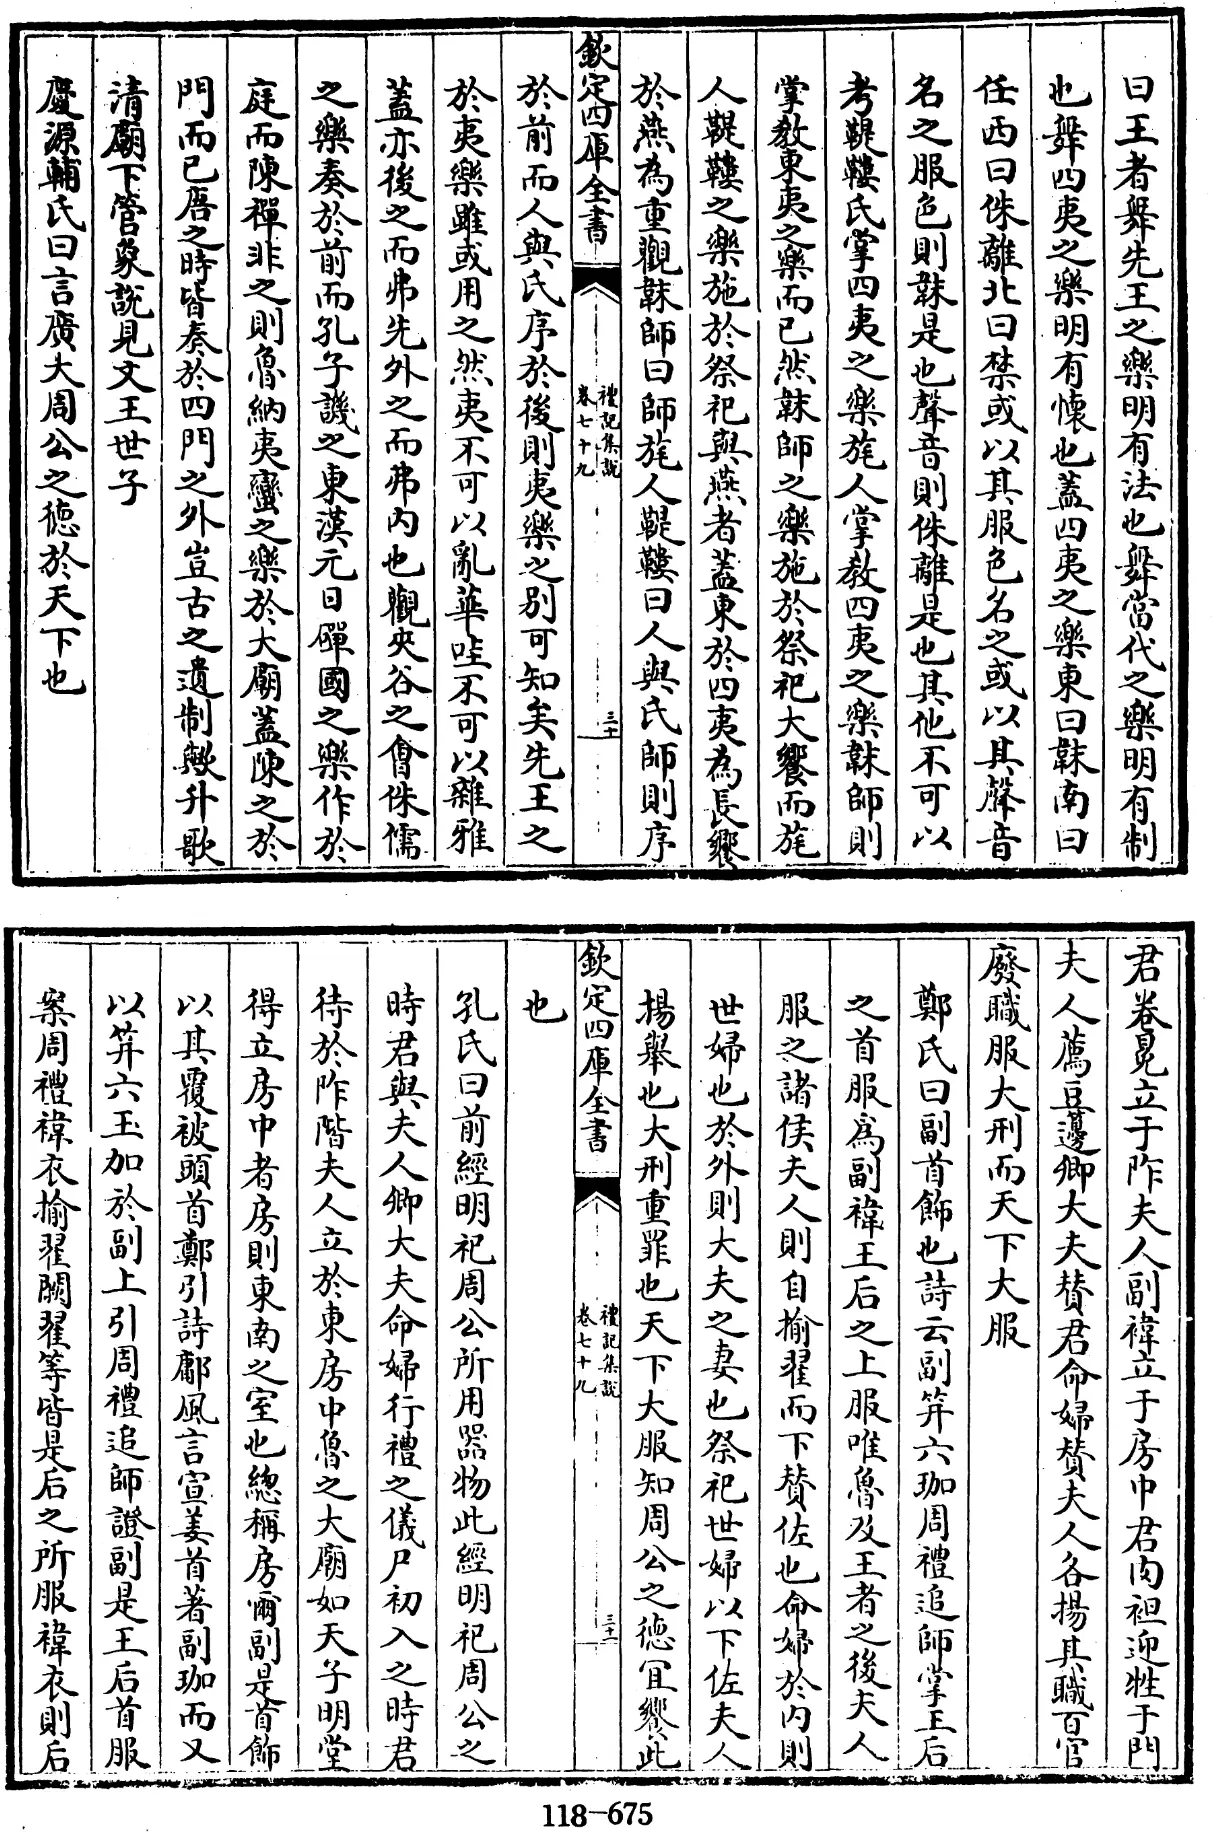 曰王者舞先王之樂明有法也舞當代之樂明有制
也舞四夷之樂明有懷也蓋四夷之樂東曰韎南曰
任西曰侏離北曰禁或以其服色名之或以其聲音
名之服色則韎是也聲音則侏離是也其他不可以
考鞮鞻氏掌四夷之樂旄人掌教四夷之樂韎師則
掌教東夷之樂而已然韎師之樂施於祭祀大饗而旄
人鞮鞻之樂施於祭祀與燕者蓋東於四夷為長饗
於燕為重觀韎師曰師旄人鞮鞻曰人與氏師則序
欽定四庫全書
禮記集說
卷七十九
三十
於前而人與氏序於後則夷樂之別可知矣先王之
於夷樂雖或用之然夷不可以亂華哇不可以雜雅
蓋亦後之而弗先外之而弗內也觀夾谷之會侏儒
之樂奏於前而孔子譏之東漢元日磾國之樂作於
庭而陳禪非之則魯納夷蠻之樂於大廟蓋陳之於
門而已唐之時皆奏於四門之外豈古之遺制歟升歌
清廟下管象說見文王世子
慶源輔氏曰言廣大周公之德於天下也
君卷冕立于阼夫人副褘立于房中君肉袒迎牲于門
夫人薦豆籩卿大夫贊君命婦贊夫人各揚其職百官
廢職服大刑而天下大服
鄭氏曰副首飾也詩云副笄六珈周禮追師掌王后
之首服為副褘王后之上服唯魯及王者之後夫人
服之諸侯夫人則自揄翟而下贊佐也命婦於內則
世婦也於外則大夫之妻也祭祀世婦以下佐夫人
揚舉也大刑重罪也天下大服知周公之德宜饗此
欽定四庫全書
禮記集說
卷七十九
三十一
也
孔氏曰前經明祀周公所用器物此經明祀周公之
時君與夫人卿大夫命婦行禮之儀尸初入之時君
待於阼階夫人立於東房中魯之大廟如天子明堂
得立房中者房則東南之室也總稱房爾副是首飾
以其覆被頭首鄭引詩鄘風言宣姜首著副珈而又
以笄六玉加於副上引周禮追師證副是王后首服
案周禮褘衣揄翟闕翟等皆是后之所服褘衣則后
118-675